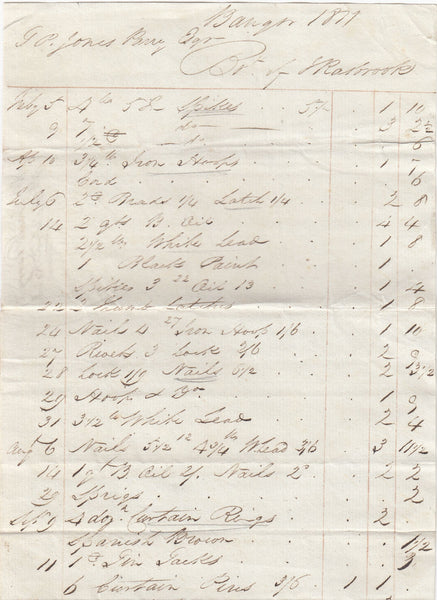 Bangor 18
T P. Jones Parry Esqr
Bt of Rasbrook
5 4 lb Spikes 5/- 1 10
9 7 do 3 2½
6
Ap 10 3¼ lb Iron Hoops 1
Cord 6
July 6 2d Brads 1/4 Latch 1/4 2 8
14 2 qts B. Oil 4 4
2½ lb White Lead 1 8
1 Black Paint
Spikes 3 22 Oil 13 1 4
22 2 Thumb Latches 1 8
24 Nails 4 27 Iron Hoop 1/6 1 10
27 Rivets 3 Lock 2/6 2 9
28 Lock 1/9 Nails 5½ 2 3½
29 Hoop & Do 1 9
31 3½ lb White Lead 2 4
Augt 6 Nails 5½ 12 4¾ lb W Lead 2/6 3 11½
14 1 qt B Oil 2/. Nails 2d 2 2
29 Sprigs 2
Sepr 9 4 doz Curtain Rings 2
Spanish Brown 1½
11 1d Tin Tacks 3
6 Curtain Pins 3/6 1 1